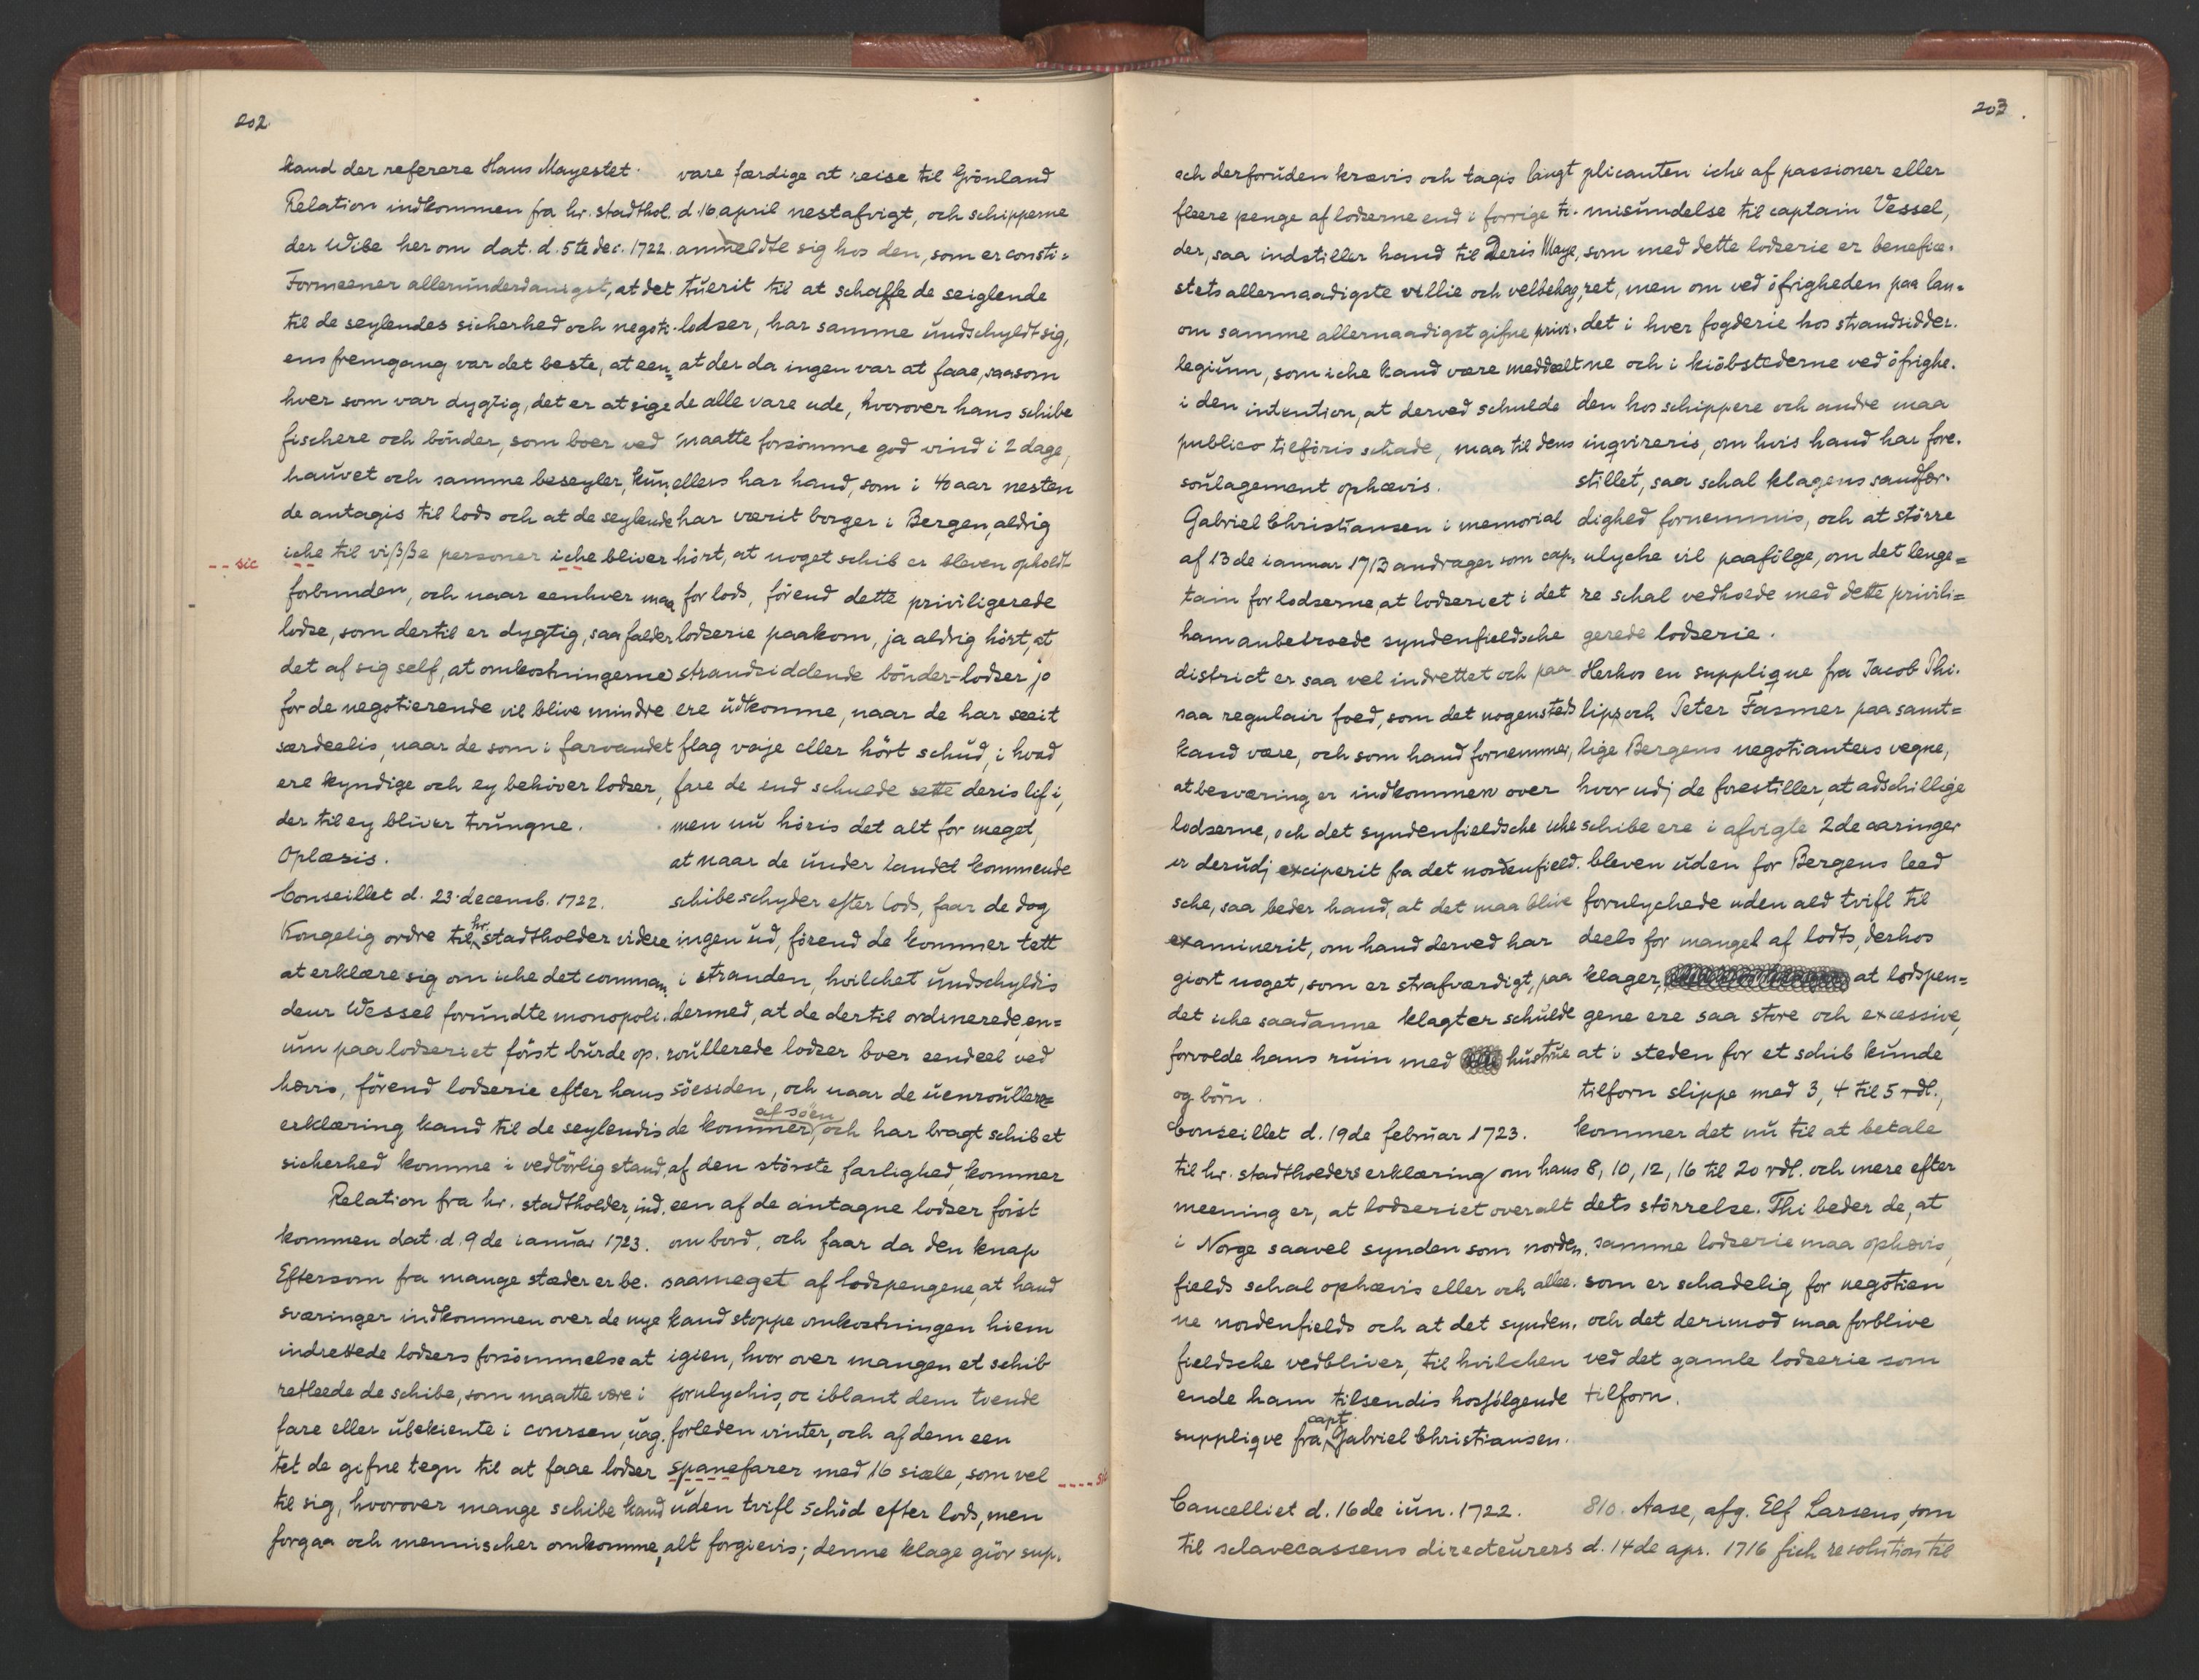 202
kand der referere Hans Mayestet.
Relation indkommen fra hr. stadthol.
der Wibe her om dat. d. 5te dec. 1722.
Formeener allerunderdanigst, at det
til de seylendes sicherhed och negoti-
ens fremgang var det beste, at een=
hver som var dygtig, det er at sige
fischere och bönder, som boer ved
hauvet och samme beseyler, kun,
de antagis til lods och at de seylende
-- sic
iche til visse personer iche bliver
forbunden, och naar eenhver maa
lodse, som dertil er dygtig, saa falder
det af sig self, at omkostningerne
for de negotierende vil blive mindre
særdeelis, naar de som i farvandet
ere kyndige och ey behöver lodser,
der til ey bliver tvungne.
Oplæsis.
Conseillet d. 23. decemb. 1722.
Kongelig ordre til hr. stadtholder videre
at erklære sig om iche det comman,
deur Wessel forundte monopoli.
um paa lodseriet först burde op.
hævis, förend lodserie efter hans
erklæring kand til de seylendis
sicherhed komme i vedbörlig stand.
Relation fra hr. stadtholder, ind.
kommen dat. d. 9de ianuar 1723.
Eftersom fra mange stæder er be.
sværinger indkommen over de nye
indrettede lodsers forsömmelse at
retleede de schibe, som maatte være i
fare eller ubekiente i coursen, uag.
tet de gifne tegn til at faae lodser
til sig, hvorover mange schibe kand
forgaa och mennischer omkomme,
vare færdige at reise til Grönland
d. 16 april nestafvigt, och schipperne
anmeldte sig hos den, som er consti=
tuerit til at schaffe de seiglende
lodser, har samme undschyldt sig,
at der da ingen var at faae, saasom
de alle vare ude, hvorover hans schibe
maatte forsömme god vind i 2 dage,
ellers har hand, som i 40 aar nesten
har værit borger i Bergen, aldrig
hört, at noget schib er bleven opholdt
for lods, förend dette priviligerede
lodserie paakom, ja aldrig hört, at
strandsiddende bönder-lodser jo
ere udkomme, naar de har seeit
flag vaje eller hört schud, i hvad
fare de end schulde sette deris lif i,
men nu höris det alt for meget,
at naar de under landet kommende
schibe schyder efter lods, faar de dog
ingen ud, förend de kommer tett
i stranden, hvilchet undschyldis
dermed, at de dertil ordinerede, en=
roullerede lodser boer eendeel ved
söesiden, och naar de uenroullere=
de kommer af söen, och har bragt schibet
af den störste farlighed, kommer
een af de antagne lodser först
om bord, och faar da den knap
saameget af lodspengene, at hand
kand stoppe omkostningen hiem
igien, hvor over mangen et schib
forulychis, oc iblant dem tvende
forleden vinter, och af dem een
spanefarer med 16 siæle, som vel
---- sic
uden tvifl schöd efter lods, men
alt forgievis; denne klage giör sup.
203.
och derforuden krævis och tagis langt
fleere penge af lodserne end i forrige ti.
der, saa indstiller hand til Deris Maye,
stets allernaadigste villie och velbehag,
om samme allernaadigst gifne privi.
legium, som iche kand være meddælt
i den intention, at derved schulde
publico tilföris schade, maa til dens
soulagement ophævis.
Gabriel Christiansen i memorial
af 13de ianuar 1713 andrager som cap,
tain for lodserne, at lodseriet i det
ham anbetroede syndenfieldsche
district er saa vel indrettet och paa
saa regulair foed, som det nogensteds
kand være, och som hand fornemmer,
at besværing er indkommen over
lodserne, och det syndenfieldsche iche
er derudj exciperit fra det nordenfield.
sche, saa beder hand, at det maa blive
examinerit, om hand derved har
giort noget, som er strafværdigt, paa
det iche saadanne klagter schulde
forvolde hans ruin med hustrue
og börn.
Conseillet d. 19de februar 1723.
til hr. stadtholders erklæring om hans
meening er, at lodseriet overalt
i Norge saavel synden som norden,
fields schal ophævis eller och allee.
ne nordenfields och at det synden,
fieldsche vedbliver, til hvilchen
ende ham tilsendis hosfölgende
supplique fra capt. Gabriel Christiansen.
Cancelliet d. 16de iun. 1722.
til sclavecassens directeurers
plicanten iche af passioner eller
misundelse til captain Vessel,
som med dette lodserie er benefice.
ret, men om ved öfrigheden paa lan=
det i hver fogderie hos strandsidder.
ne och i kiöbstederne ved öfrighe.
den hos schippere och andre maa
inqvireris, om hvis hand har fore.
stillet, saa schal klagens sandfær.
dighed fornemmis, och at större
ulyche vil paafölge, om det lenge=
re schal vedholde med dette privili=
gerede lodserie.
Herhos en supplique fra Jacob Thi.
lips och Peter Fasmer paa samt=
lige Bergens negotianters vegne,
hvor udj de forestiller, at adschillige
schibe ere i afvigte 2de aaringer
bleven uden for Bergens leed
forulychede uden ald tvifl til
deels for mangel af lodts, derhos
klager, at lodspen=
gene ere saa store och excessive,
at i steden for et schib kunde
tilforn slippe med 3, 4 til 5 rdl.,
kommer det nu til at betale
8, 10, 12, 16 til 20 rdl. och mere efter
dets störrelse. Thi beder de, at
samme lodserie maa ophævis,
som er schadelig for negotien
och det derimod maa forblive
ved det gamle lodserie som
tilforn.
810. Aase, afg. Elf Larsens, som
d. 14de apr. 1716 fich resolution til